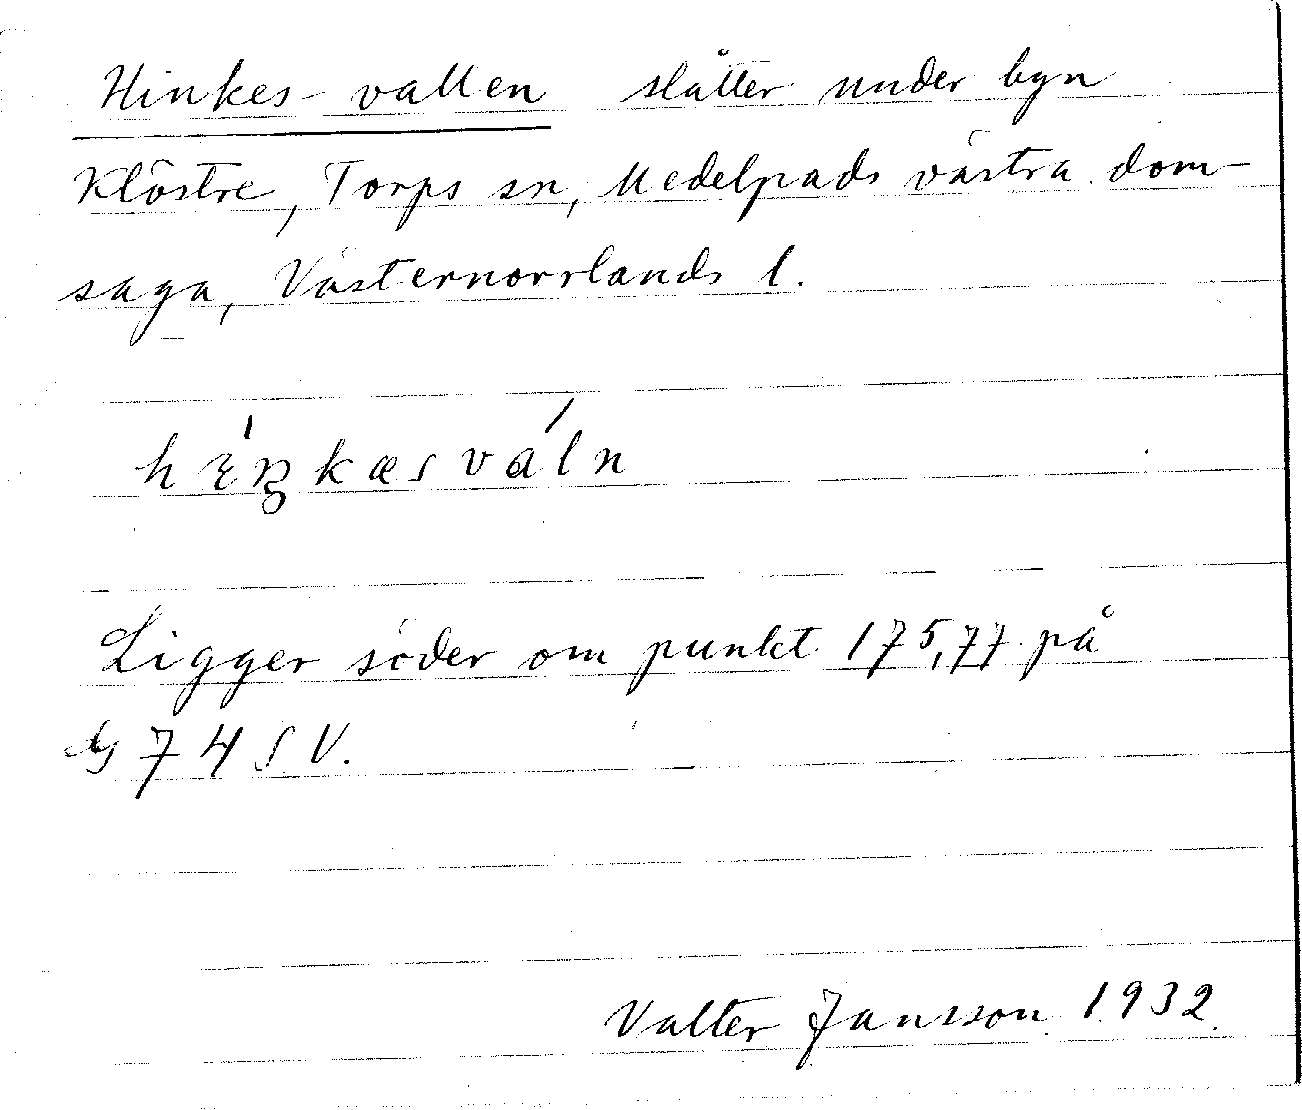 Hinkes-vallen slåtter under byn
Klöstre, Torps sn, Medelpads västra dom-
saga, Västernorrlands l.
Ligger söder om punkt 175,77 på
74 SV.
Valter Jansson 1932